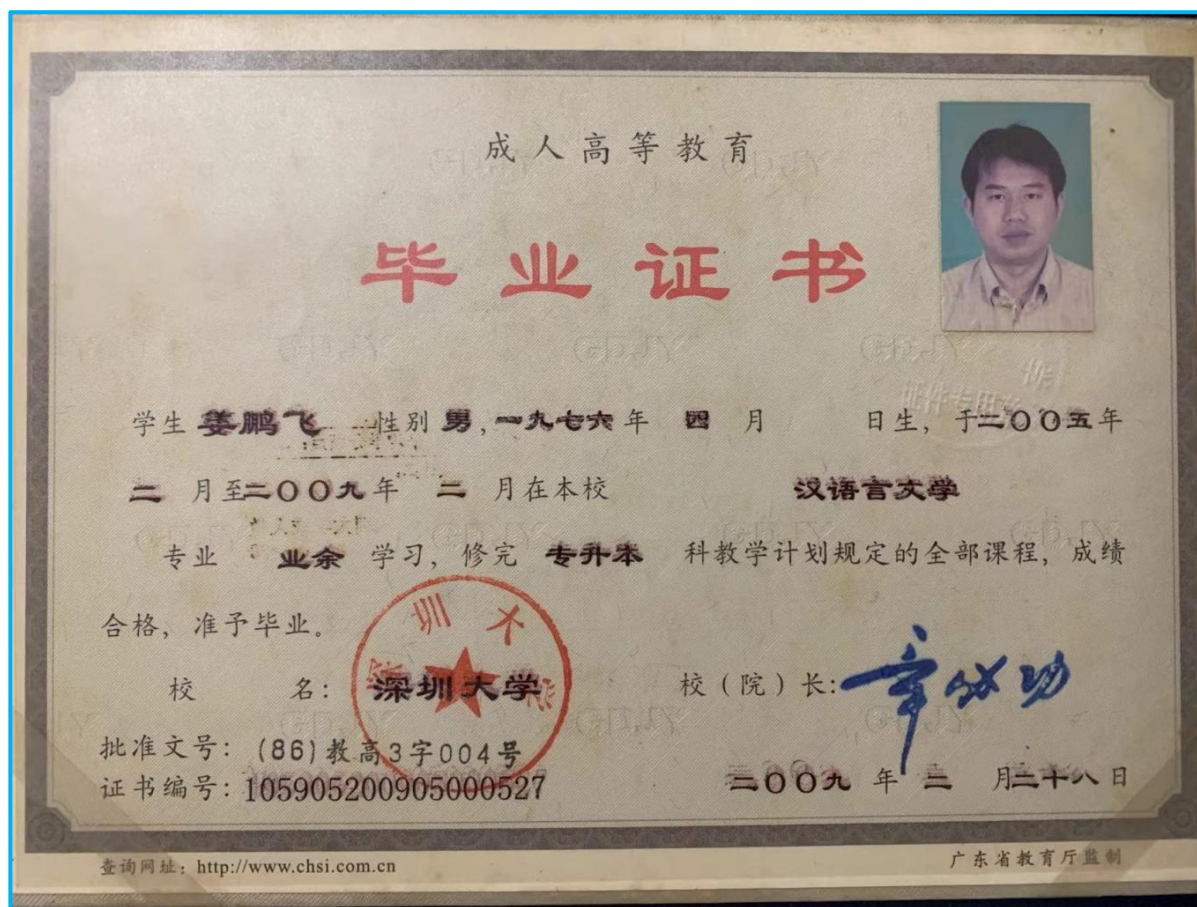 成人高等教育
毕业证书
证件专用章
学生 姜鹏飞 性别 男, 一九七六 年 四 月 日生, 于二〇〇五年
二 月至二〇〇九年 二 月在本校 汉语言文学
专业 业余 学习, 修完 专升本 科教学计划规定的全部课程, 成绩
合格, 准予毕业。
校 名: 深圳大学 校(院)长: 章必功
批准文号: (86)教高3字004号
证书编号: 105905200905000527 二〇〇九 年 二 月二十八日
查询网址: http://www.chsi.com.cn 广东省教育厅监制